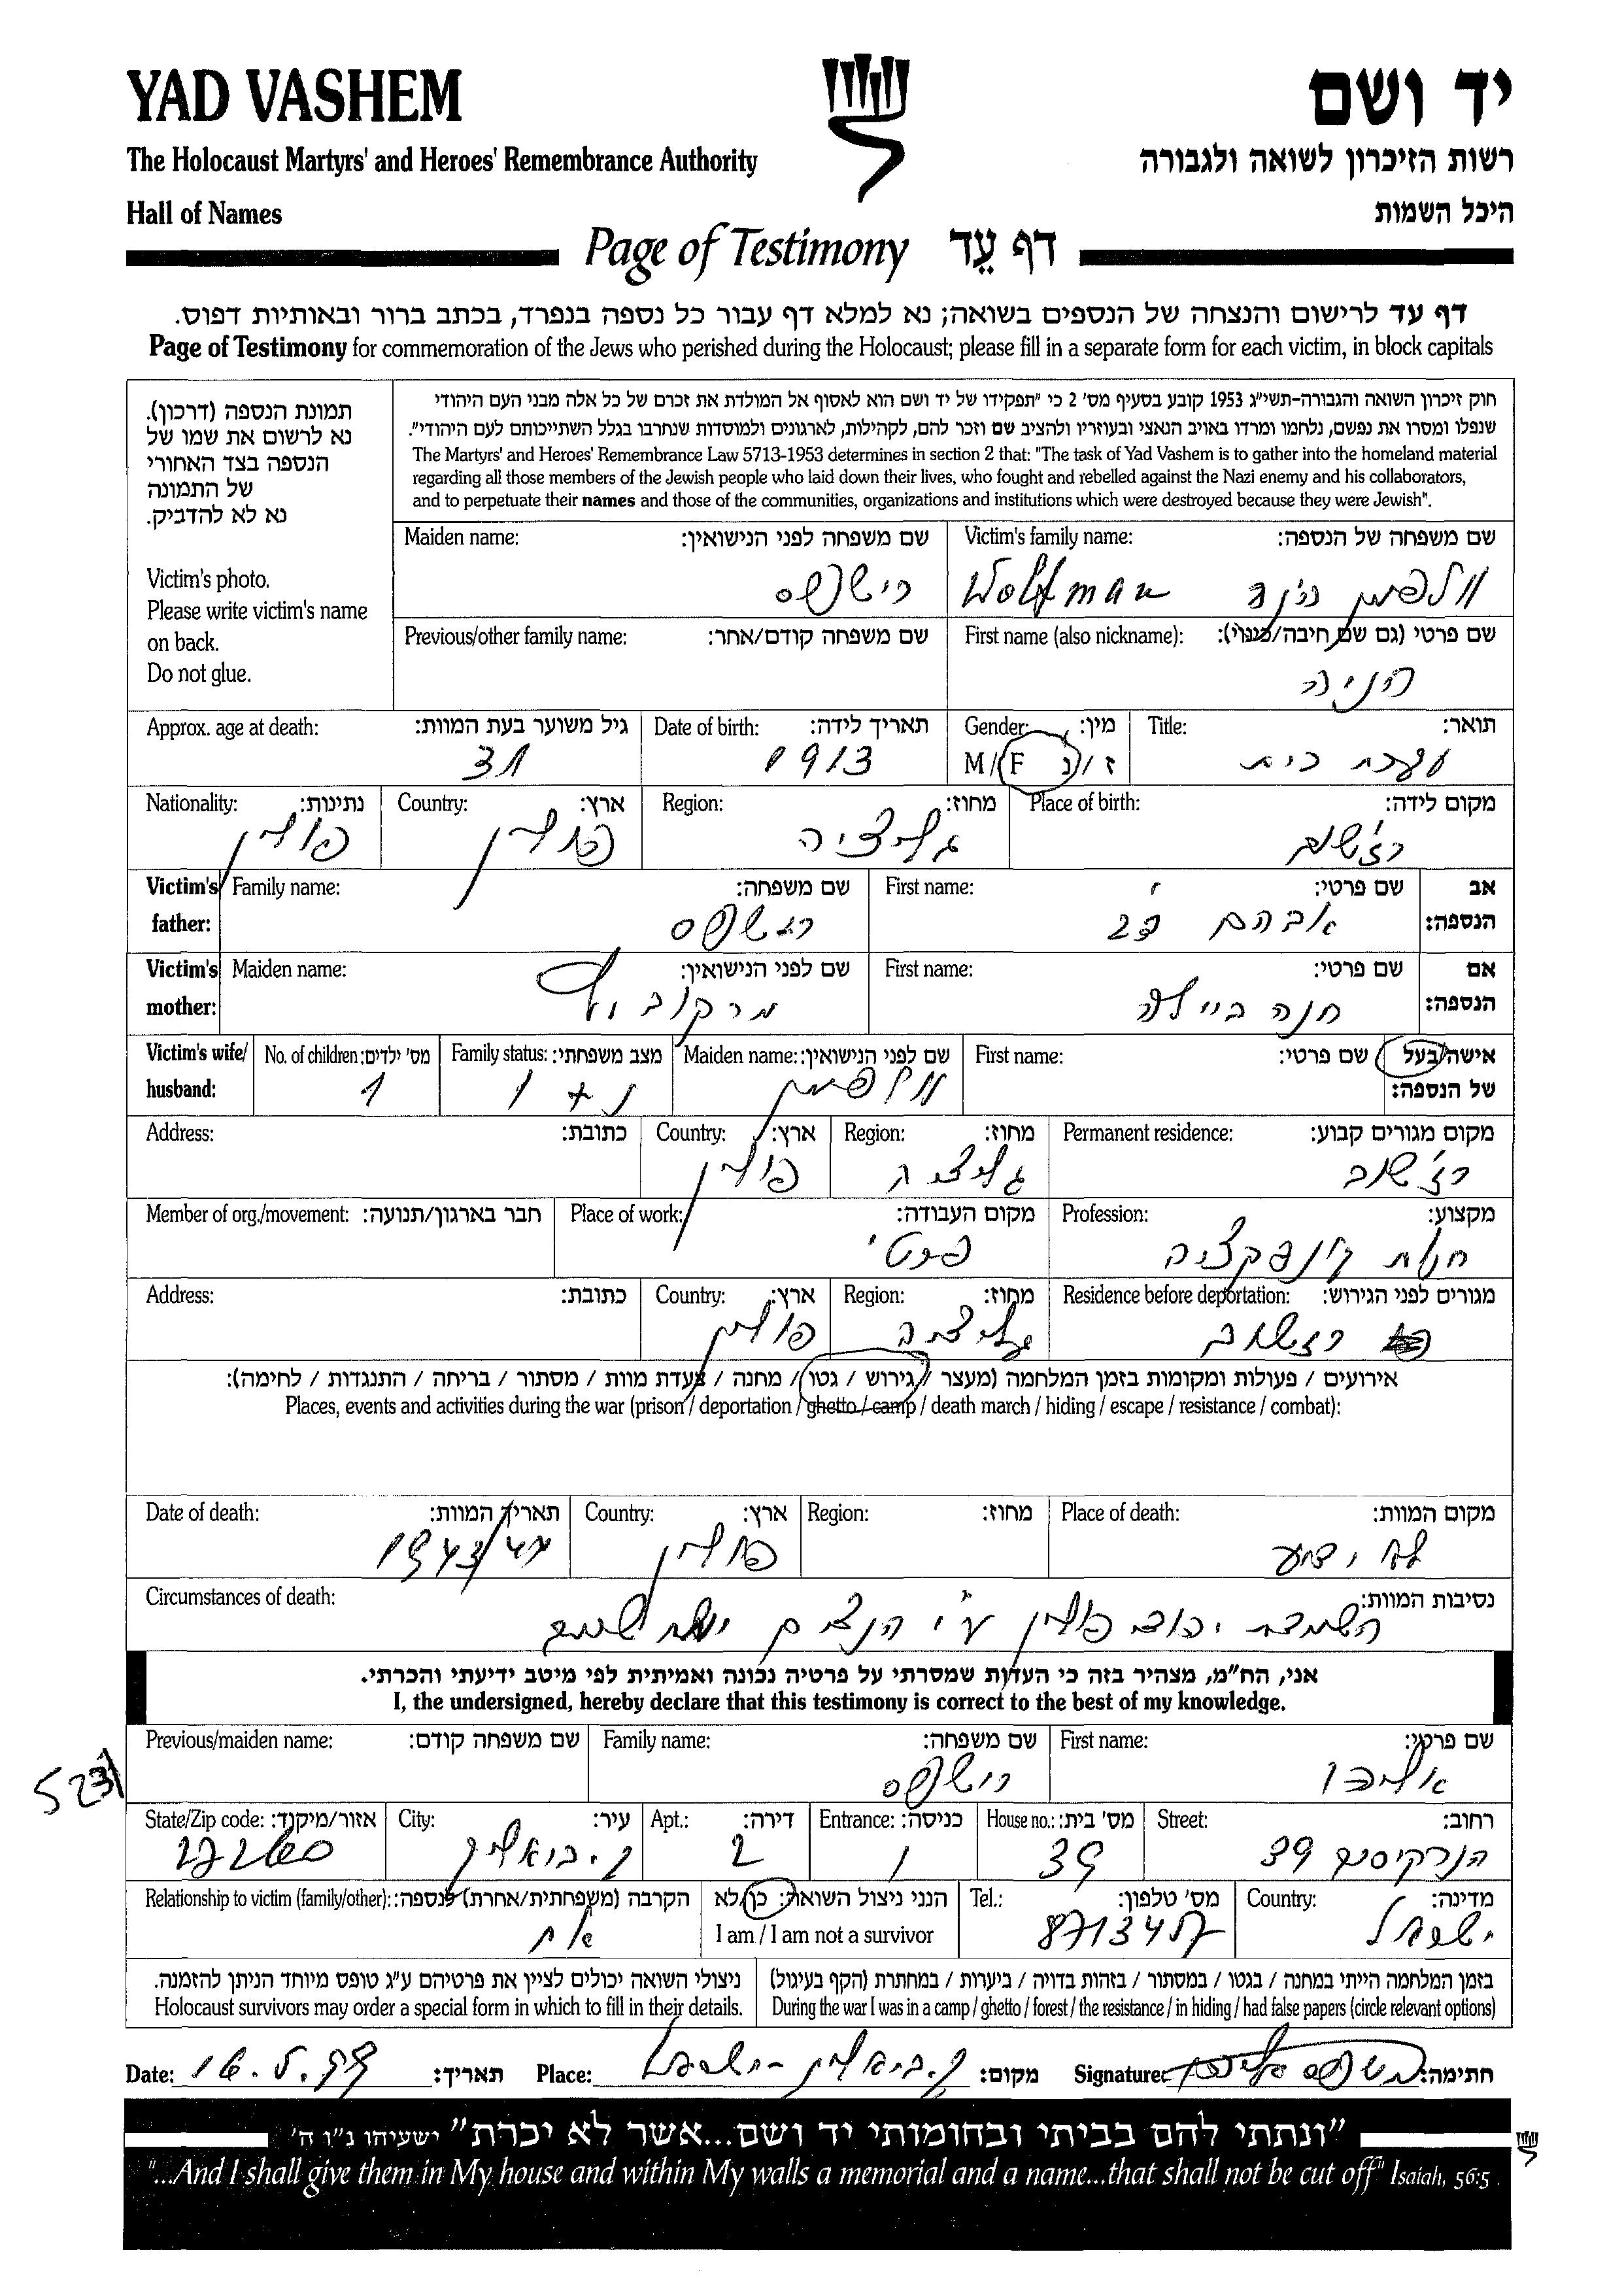 YAD VASHEM
יד ושם
The Holocaust Martyrs' and Heroes' Remembrance Authority
רשות הזיכרון לשואה ולגבורה
Hall of Names
היכל השמות
Page of Testimony דף עֵד
דף עד לרישום והנצחה של הנספים בשואה; נא למלא דף עבור כל נספה בנפרד, בכתב ברור ובאותיות דפוס.
Page of Testimony for commemoration of the Jews who perished during the Holocaust; please fill in a separate form for each victim, in block capitals
תמונת הנספה (דרכון).
נא לרשום את שמו של
הנספה בצד האחורי
של התמונה
נא לא להדביק.
Victim's photo.
Please write victim's name
on back.
Do not glue.
חוק זיכרון השואה והגבורה-תשי"ג 1953 קובע בסעיף מס' 2 כי "תפקידו של יד ושם הוא לאסוף אל המולדת את זכרם של כל אלה מבני העם היהודי
שנפלו ומסרו את נפשם, נלחמו ומרדו באויב הנאצי ובעוזריו ולהציב שם וזכר להם, לקהילות, לארגונים ולמוסדות שנחרבו בגלל השתייכותם לעם היהודי".
The Martyrs' and Heroes' Remembrance Law 5713-1953 determines in section 2 that: "The task of Yad Vashem is to gather into the homeland material
regarding all those members of the Jewish people who laid down their lives, who fought and rebelled against the Nazi enemy and his collaborators,
and to perpetuate their names and those of the communities, organizations and institutions which were destroyed because they were Jewish".
Victim's family name: שם משפחה של הנספה:
Wolfman
Maiden name: שם משפחה לפני הנישואין:
First name (also nickname): שם פרטי (גם שם חיבה/כינוי):
הניה
Previous/other family name: שם משפחה קודם/אחר:
Title: תואר:
עקרת בית
Gender: מין:
M/F ז/נ
Date of birth: תאריך לידה:
1913
Approx. age at death: גיל משוער בעת המוות:
31
Place of birth: מקום לידה:
רז'שוב
Region: מחוז:
גליציה
Country: ארץ:
פולין
Nationality: נתינות:
פולין
Victim's father: אב הנספה:
First name: שם פרטי:
אברהם
Family name: שם משפחה:
Victim's mother: אם הנספה:
First name: שם פרטי:
חנה ביילה
Maiden name: שם לפני הנישואין:
מרקוביץ
Victim's wife/husband: אישה/בעל של הנספה:
First name: שם פרטי:
Maiden name: שם לפני הנישואין:
וולפמן
Family status: מצב משפחתי:
נ + 1
No. of children: מס' ילדים:
1
Permanent residence: מקום מגורים קבוע:
רז'שוב
Region: מחוז:
גליציה
Country: ארץ:
פולין
Address: כתובת:
Profession: מקצוע:
חנות קונפקציה
Place of work: מקום העבודה:
פרטי
Member of org./movement: חבר בארגון/תנועה:
Residence before deportation: מגורים לפני הגירוש:
רז'שוב
Region: מחוז:
גליציה
Country: ארץ:
פולין
Address: כתובת:
אירועים / פעולות ומקומות בזמן המלחמה (מעצר / גירוש / גטו / מחנה / צעדת מוות / מסתור / בריחה / התנגדות / לחימה):
Places, events and activities during the war (prison / deportation / ghetto / camp / death march / hiding / escape / resistance / combat):
Place of death: מקום המוות:
לא ידוע
Region: מחוז:
Country: ארץ:
פולין
Date of death: תאריך המוות:
1943/44
Circumstances of death: נסיבות המוות:
השמדת יהודי פולין ע"י הנצים
אני, הח"מ, מצהיר בזה כי העדות שמסרתי על פרטיה נכונה ואמיתית לפי מיטב ידיעתי והכרתי.
I, the undersigned, hereby declare that this testimony is correct to the best of my knowledge.
First name: שם פרטי:
Family name: שם משפחה:
Previous/maiden name: שם משפחה קודם:
5231
Street: רחוב:
הנרקיסים 39
House no.: מס' בית:
39
Entrance: כניסה:
1
Apt.: דירה:
2
City: עיר:
ק. ביאליק
State/Zip code: אזור/מיקוד:
Country: מדינה:
ישראל
Tel.: מס' טלפון:
I am / I am not a survivor הנני ניצול השואה: כן/לא
Relationship to victim (family/other): הקרבה (משפחתית/אחרת) לנספה:
אח
בזמן המלחמה הייתי במחנה / בגטו / במסתור / בזהות בדויה / ביערות / במחתרת (הקף בעיגול)
During the war I was in a camp / ghetto / forest / the resistance / in hiding / had false papers (circle relevant options)
ניצולי השואה יכולים לציין את פרטיהם ע"ג טופס מיוחד הניתן להזמנה.
Holocaust survivors may order a special form in which to fill in their details.
Date: 16.5.99 תאריך:
Place: ק. ביאליק - ישראל מקום:
Signature: חתימה:
"ונתתי להם בביתי ובחומותי יד ושם...אשר לא יכרת" ישעיהו נ"ו ה'
"...And I shall give them in My house and within My walls a memorial and a name...that shall not be cut off" Isaiah, 56:5